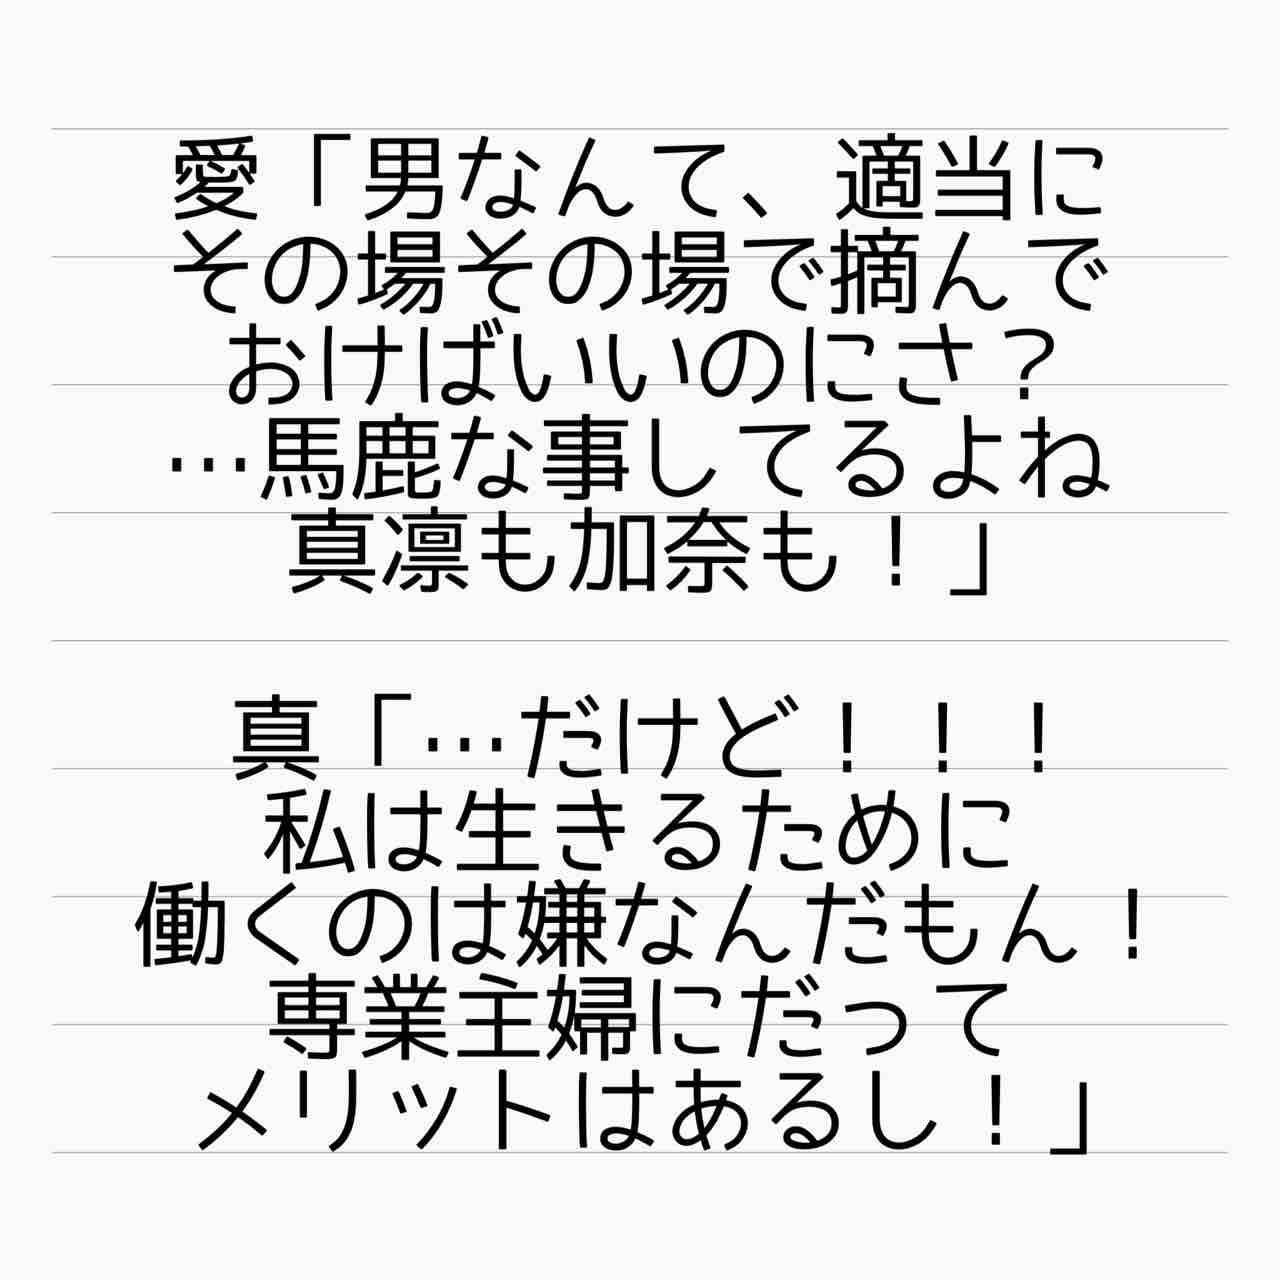 愛「男なんて、適当に
その場その場で摘んで
おけばいいのにさ？
…馬鹿な事してるよね
真凛も加奈も！」
真「…だけど！！！
私は生きるために
働くのは嫌なんだもん！
専業主婦にだって
メリットはあるし！」